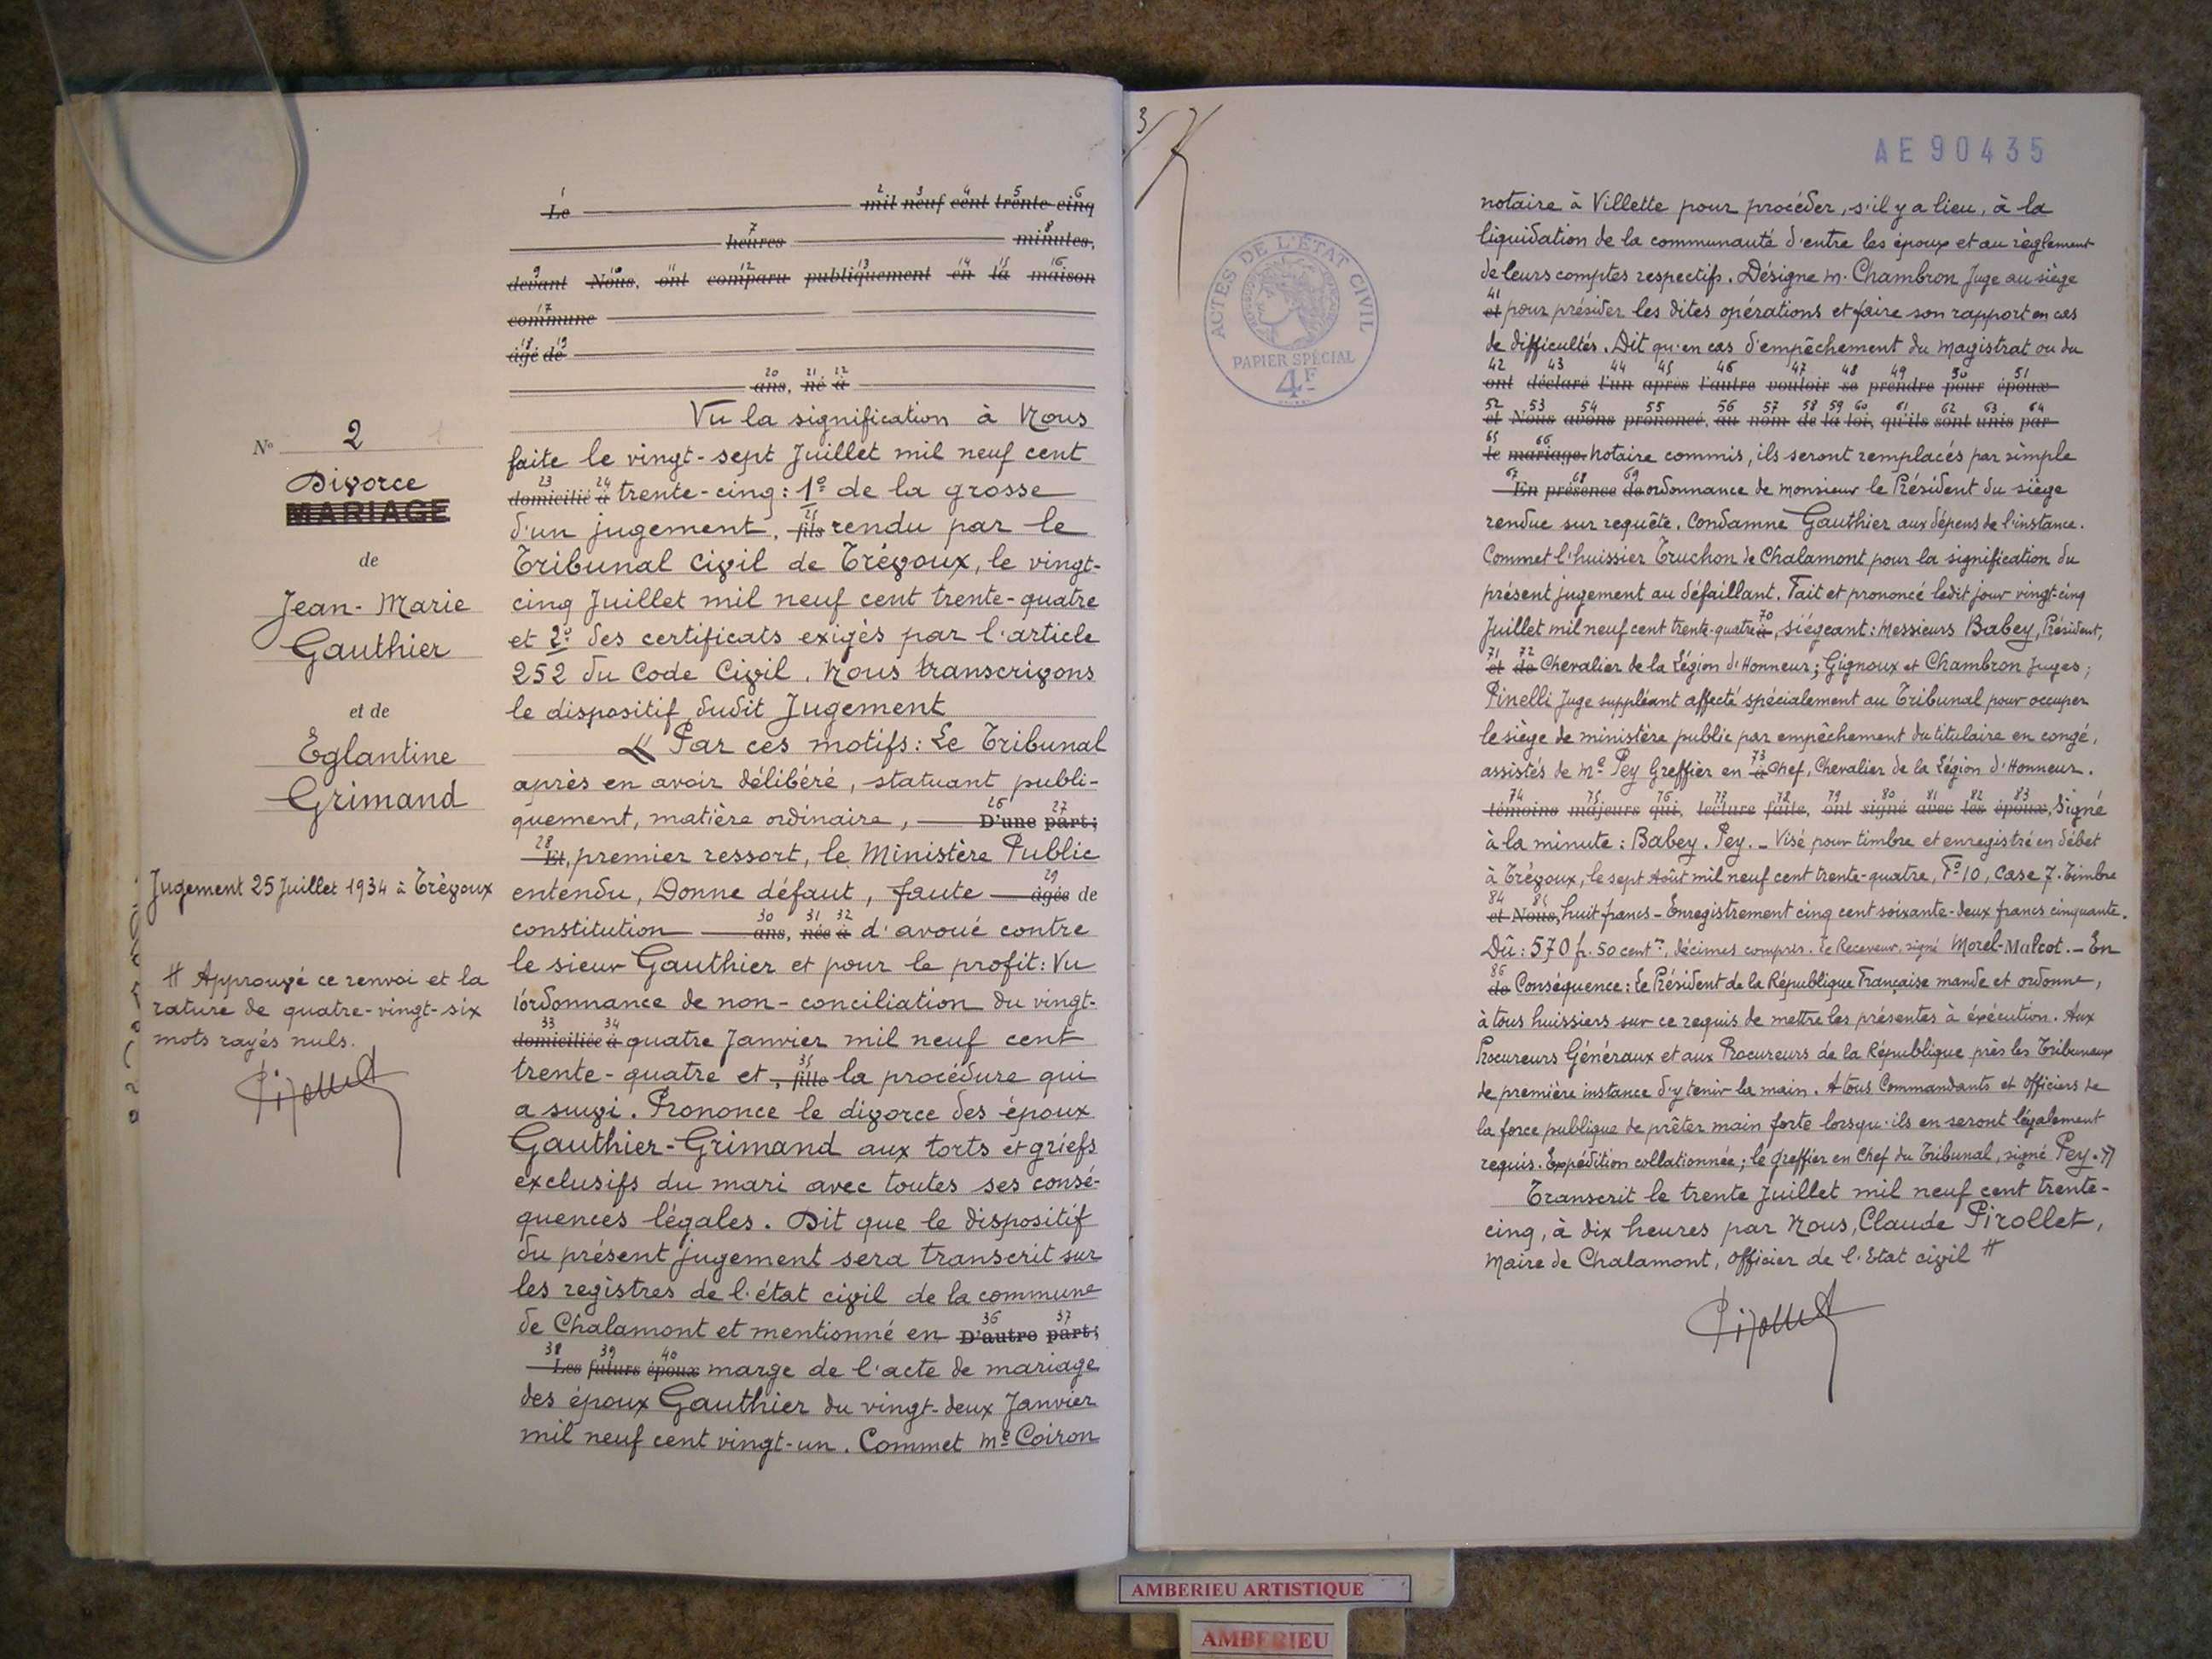 Le mil neuf cent trente-cinq
heures minutes,
devant Nous, ont comparu publiquement en la maison
commune
âgé de
ans, né à
Vu la signification à Nous
faite le vingt-sept Juillet mil neuf cent
domicilié à trente-cinq: 1º de la grosse
d'un jugement, fils rendu par le
Tribunal Civil de Trévoux, le vingt-
cinq Juillet mil neuf cent trente-quatre
et 2º des certificats exigés par l'article
252 du Code Civil. Nous transcrivons
le dispositif dudit Jugement
« Par ces motifs: Le Tribunal
après en avoir délibéré, statuant publi-
quement, matière ordinaire, D'une part;
Et, premier ressort, le Ministère Public
entendu, Donne défaut, faute âgée de
constitution ans, née à d'avoué contre
le sieur Gauthier et pour le profit: Vu
l'ordonnance de non-conciliation du vingt-
domiciliée à quatre Janvier mil neuf cent
trente-quatre et, fille la procédure qui
a suivi. Prononce le divorce des époux
Gauthier-Grimand aux torts et griefs
exclusifs du mari avec toutes ses consé-
quences légales. Dit que le dispositif
du présent jugement sera transcrit sur
les registres de l'état civil de la commune
de Chalamont et mentionné en D'autre part;
Les futurs époux marge de l'acte de mariage
des époux Gauthier du vingt-deux Janvier
mil neuf cent vingt-un. Commet Me Coiron
Nº 2
Divorce
MARIAGE
de
Jean-Marie
Gauthier
et de
Eglantine
Grimand
Jugement 25 Juillet 1934 à Trévoux
# Approuvé ce renvoi et la
rature de quatre-vingt-six
mots rayés nuls.
Pirollet
3
AE90435
ACTES DE L'ÉTAT CIVIL
PAPIER SPÉCIAL
4F
notaire à Villette pour procéder, s'il y a lieu, à la
liquidation de la communauté d'entre les époux et au règlement
de leurs comptes respectifs. Désigne M. Chambron Juge au siège
et pour présider les dites opérations et faire son rapport en cas
de difficultés. Dit qu'en cas d'empêchement du magistrat ou du
ont déclaré l'un après l'autre vouloir se prendre pour époux
et Nous avons prononcé, au nom de la loi, qu'ils sont unis par
le mariage. notaire commis, ils seront remplacés par simple
En présence de ordonnance de monsieur le Président du siège
rendue sur requête. Condamne Gauthier aux dépens de l'instance.
Commet l'huissier Truchon de Chalamont pour la signification du
présent jugement au défaillant. Fait et prononcé ledit jour vingt-cinq
Juillet mil neuf cent trente-quatre à, siégeant: Messieurs Babey, Président,
et de Chevalier de la Légion d'Honneur; Gignoux et Chambron Juges;
Pinelli Juge suppléant affecté spécialement au Tribunal pour occuper
le siège de ministère public par empêchement du titulaire en congé,
assistés de Me Pey Greffier en à Chef, Chevalier de la Légion d'Honneur.
témoins majeurs qui, lecture faite, ont signé avec les époux, Signé
à la minute: Babey. Pey. - Visé pour timbre et enregistré en débet
à Trévoux, le sept Août mil neuf cent trente-quatre, Fº 10, Case 7. Timbre
et Nous, huit francs - Enregistrement cinq cent soixante-deux francs cinquante.
Dû: 570 fr. 50 centmes, décimes compris. Le Receveur, signé Morel-Malcot. - En
de Conséquence: Le Président de la République Française mande et ordonne,
à tous huissiers sur ce requis de mettre les présentes à éxécution. Aux
Procureurs Généraux et aux Procureurs de la République près les Tribunaux
de première instance d'y tenir la main. A tous Commandants et Officiers de
la force publique de prêter main forte lorsqu'ils en seront légalement
requis. Expédition collationnée; le Greffier en Chef du Tribunal, signé Pey. »
Transcrit le trente Juillet mil neuf cent trente-
cinq, à dix heures par Nous, Claude Pirollet,
Maire de Chalamont, Officier de l'Etat civil #
Pirollet
AMBERIEU ARTISTIQUE
AMBERIEU